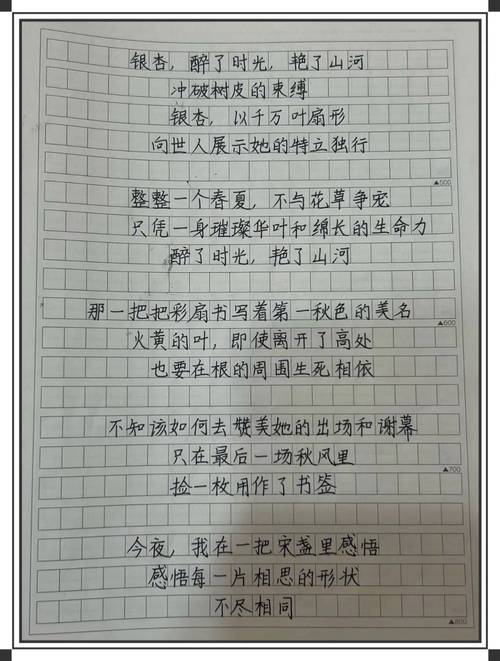 银杏，醉了时光，艳了山河
冲破树皮的束缚
银杏，以千万叶扇形
向世人展示她的特立独行
▲500
整整一个春夏，不与花草争宠
只凭一身璀璨华叶和绵长的生命力
醉了时光，艳了山河
那一把把彩扇书写着第一秋色的美名
▲600
火黄的叶，即使离开了高处
也要在根的周围生死相依
不知该如何去赞美她的出场和谢幕
只在最后一场秋风里
▲700
捡一枚用作了书签
今夜，我在一把宋盏里感悟
感悟每一片相思的形状
不尽相同
▲800